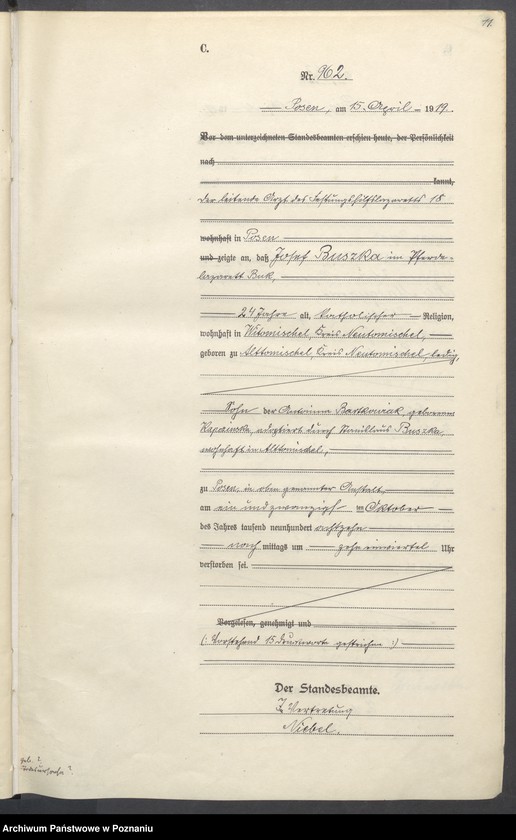 11.
C.
Nr. 962.
Posen, am 15. April 1919.
Vor dem unterzeichneten Standesbeamten erschien heute, der Persönlichkeit
nach
kannt,
der leitende Arzt des Festungshilfslazaretts 15
wohnhaft in Posen
und zeigte an, daß Josef Buszka im Pferde-
lazarett Buk,
24 Jahre alt, katholischer Religion,
wohnhaft in Witomischel, Kreis Neutomischel,
geboren zu Alttomischel, Kreis Neutomischel, ledig,
Sohn der Antonina Bartkowiak, geborenen
adoptiert durch Stanislaus Buszka,
wohnhaft in Alttomischel,
zu Posen, in oben genannter Anstalt,
am ein und zwanzigsten Oktober
des Jahres tausend neunhundert achtzehn
nach mittags um zehn einviertel Uhr
verstorben sei.
Vorgelesen, genehmigt und
(: Vorstehend 15 Druckworte gestrichen :)
Der Standesbeamte.
In Vertretung
Niebel.
geb. ?
Todesursache ?
Archiwum Państwowe w Poznaniu